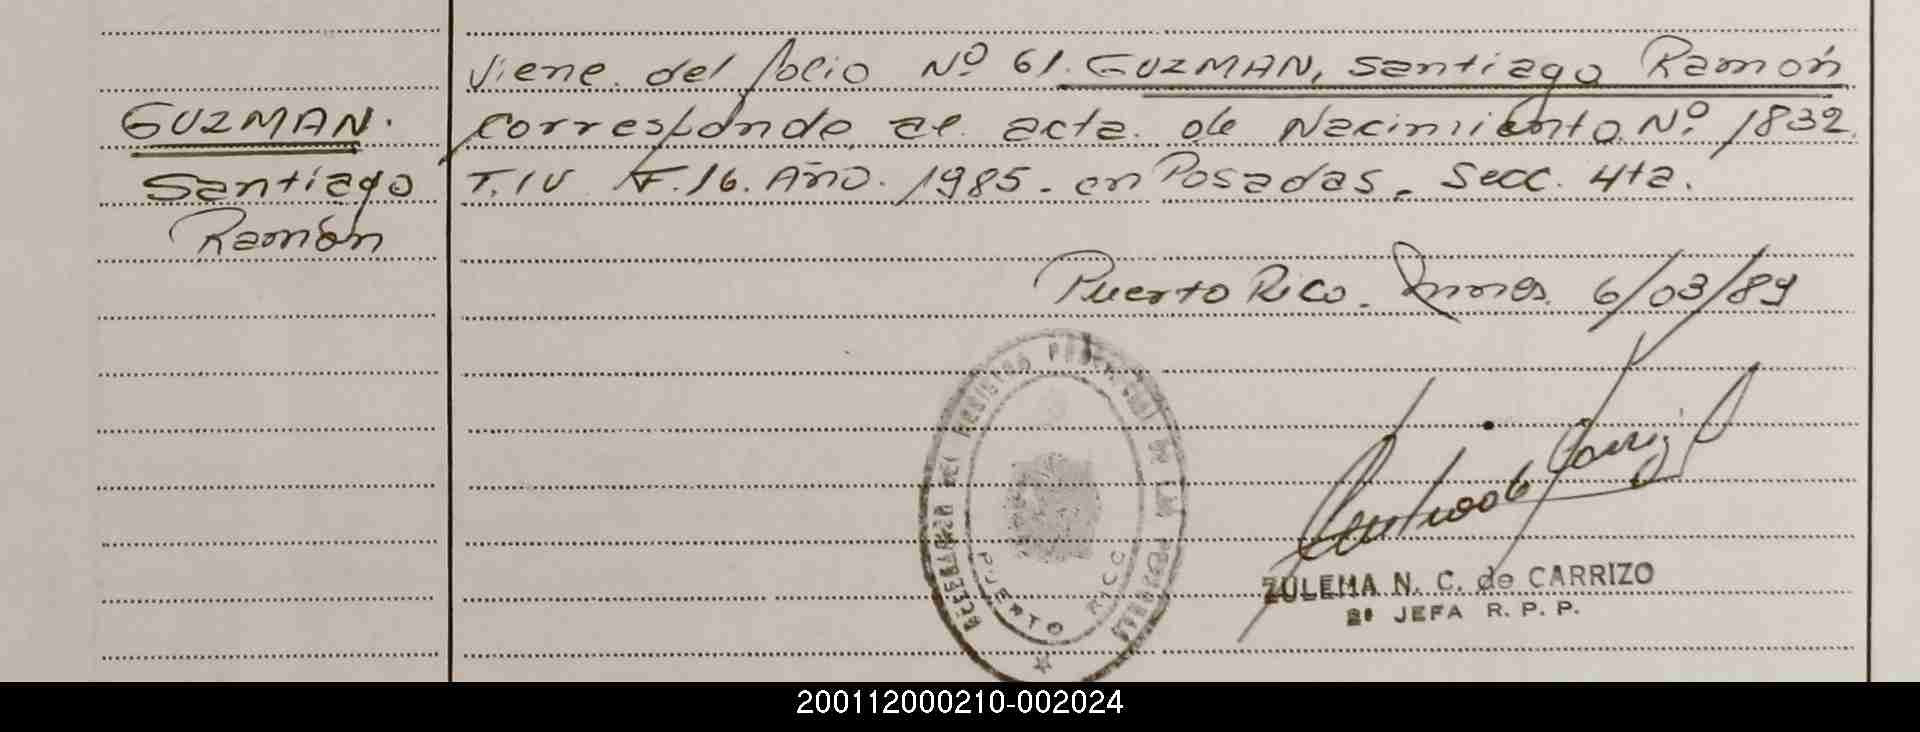 GUZMAN.
Santiago
Ramón
Viene del folio Nº 61. GUZMAN, Santiago Ramón
corresponde al acta de Nacimiento Nº 1832.
T. IV F. 16. Año. 1985. en Posadas, Secc. 4ta.
Puerto Rico. Mnes. 6/03/89
DELEGACION DEL REGISTRO PROVINCIAL DE LAS PERSONAS
PUERTO RICO
ZULEMA N. C. de CARRIZO
2º JEFA R. P. P.
200112000210-002024